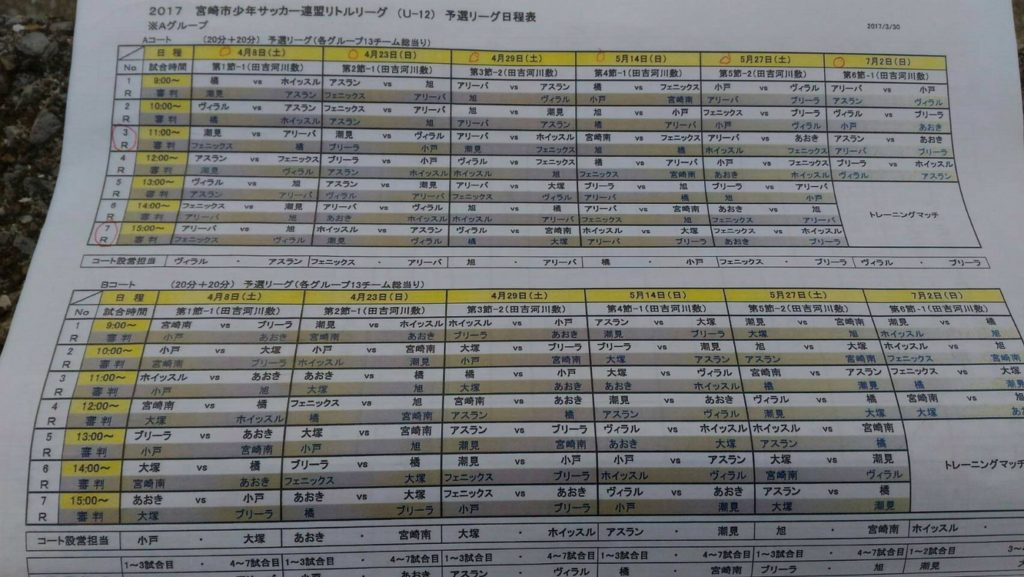 2017 宮崎市少年サッカー連盟リトルリーグ (U-12) 予選リーグ日程表
2017/3/30
※Aグループ
Aコート (20分+20分) 予選リーグ(各グループ13チーム総当り)
日程 4月8日(土) 4月23日(日) 4月29日(土) 5月14日(日) 5月27日(土) 7月2日(日)
No. 試合時間 第1節-1(田吉河川敷) 第2節-1(田吉河川敷) 第3節-2(田吉河川敷) 第4節-1(田吉河川敷) 第5節-2(田吉河川敷) 第6節-1(田吉河川敷)
1 9:00〜 橘 vs ホイッスル アスラン vs 旭 アリーバ vs アスラン 橘 vs フェニックス 小戸 vs ヴィラル アリーバ vs 小戸
R 審判 潮見 アスラン フェニックス アリーバ 旭 ヴィラル 小戸 宮崎南 アリーバ ブリーラ アスラン ヴィラル
2 10:00〜 ヴィラル vs アスラン フェニックス vs アリーバ 旭 vs 潮見 旭 vs 小戸 アリーバ vs フェニックス ブリーラ vs ヴィラル
R 審判 橘 ホイッスル アスラン 旭 アリーバ アスラン 橘 フェニックス 小戸 ヴィラル 小戸 あおき
3 11:00〜 潮見 vs アリーバ 潮見 vs ヴィラル アリーバ vs ホイッスル 宮崎南 vs フェニックス アリーバ vs あおき アスラン vs あおき
R 審判 フェニックス 橘 ブリーラ 小戸 潮見 フェニックス 旭 橘 フェニックス ヴィラル アリーバ ブリーラ
4 12:00〜 アスラン vs フェニックス ブリーラ vs 小戸 ヴィラル vs フェニックス 橘 vs アリーバ 小戸 vs フェニックス ブリーラ vs ホイッスル
R 審判 潮見 ヴィラル アスラン ホイッスル ホイッスル 旭 フェニックス 宮崎南 あおき ホイッスル ヴィラル アスラン
5 13:00〜 ヴィラル vs 旭 アスラン vs 潮見 アリーバ vs 大塚 ブリーラ vs 旭 ブリーラ vs アリーバ
R 審判 アスラン アリーバ ヴィラル ブリーラ ヴィラル フェニックス 橘 アリーバ 旭 小戸
6 14:00〜 フェニックス vs 潮見 アリーバ vs ヴィラル 旭 vs ホイッスル 宮崎南 vs アリーバ あおき vs 旭
R 審判 アリーバ 旭 あおき ホイッスル ホイッスル アリーバ フェニックス 旭 フェニックス アリーバ
トレーニングマッチ
7 15:00〜 アリーバ vs 旭 ホイッスル vs アスラン ヴィラル vs 橘 ホイッスル vs 大塚 フェニックス vs ブリーラ
R 審判 フェニックス ヴィラル 潮見 ヴィラル 橘 大塚 アリーバ ブリーラ あおき ブリーラ
コート設営担当 ヴィラル ・ アスラン フェニックス ・ アリーバ 旭 ・ アリーバ 橘 ・ 小戸 フェニックス ・ ブリーラ ヴィラル ・ ブリーラ
Bコート (20分+20分) 予選リーグ(各グループ13チーム総当り)
日程 4月8日(土) 4月23日(日) 4月29日(土) 5月14日(日) 5月27日(土) 7月2日(日)
No 試合時間 第1節-1(田吉河川敷) 第2節-1(田吉河川敷) 第3節-2(田吉河川敷) 第4節-1(田吉河川敷) 第5節-2(田吉河川敷) 第6節-1(田吉河川敷)
1 9:00〜 宮崎南 vs ブリーラ 潮見 vs ホイッスル ホイッスル vs 小戸 アスラン vs 大塚 潮見 vs 宮崎南 潮見 vs 橘
R 審判 小戸 あおき 宮崎南 あおき 潮見 ブリーラ 潮見 ブリーラ 大塚 旭 ホイッスル 旭
2 10:00〜 小戸 vs 大塚 小戸 vs 宮崎南 大塚 vs ブリーラ ブリーラ vs 潮見 旭 vs 大塚 ホイッスル vs 旭
R 審判 宮崎南 ブリーラ ホイッスル 潮見 小戸 ホイッスル 大塚 アスラン アスラン 宮崎南 フェニックス 宮崎南
3 11:00〜 ホイッスル vs あおき あおき vs 橘 橘 vs 小戸 大塚 vs ヴィラル 宮崎南 vs アスラン フェニックス vs 大塚
R 審判 小戸 旭 大塚 旭 大塚 あおき あおき ホイッスル 大塚 潮見 橘 潮見
4 12:00〜 宮崎南 vs 橘 フェニックス vs 旭 宮崎南 vs あおき 潮見 vs あおき 大塚 vs 潮見 旭 vs 宮崎南
R 審判 大塚 ホイッスル 橘 宮崎南 アスラン 橘 アスラン ヴィラル 潮見 大塚 大塚 あおき
5 13:00〜 ブリーラ vs あおき 大塚 vs 宮崎南 アスラン vs ブリーラ ヴィラル vs ホイッスル ホイッスル vs 宮崎南
R 審判 宮崎南 橘 小戸 旭 潮見 宮崎南 あおき 大塚 アスラン 橘
6 14:00〜 大塚 vs 橘 ブリーラ vs 橘 大塚 vs 潮見 小戸 vs アスラン 大塚 vs 潮見
R 審判 宮崎南 あおき フェニックス 大塚 フェニックス あおき ホイッスル ヴィラル 宮崎南 ヴィラル
トレーニングマッチ
7 15:00〜 あおき vs 小戸 あおき vs 大塚 フェニックス vs あおき ヴィラル vs あおき アスラン vs 橘
R 審判 大塚 ブリーラ ブリーラ 橘 小戸 ブリーラ 小戸 潮見 大塚 潮見
コート設営担当 小戸 ・ 大塚 あおき ・ 宮崎南 大塚 ・ ホイッスル アスラン ・ 潮見 旭 ・ 宮崎南 ホイッスル ・
1〜3試合目 ・ 4〜7試合目 1〜3試合目 ・ 4〜7試合目 1〜3試合目 ・ 4〜7試合目 1〜3試合目 ・ 4〜7試合目 1〜3試合目 ・ 4〜7試合目 1〜2試合目